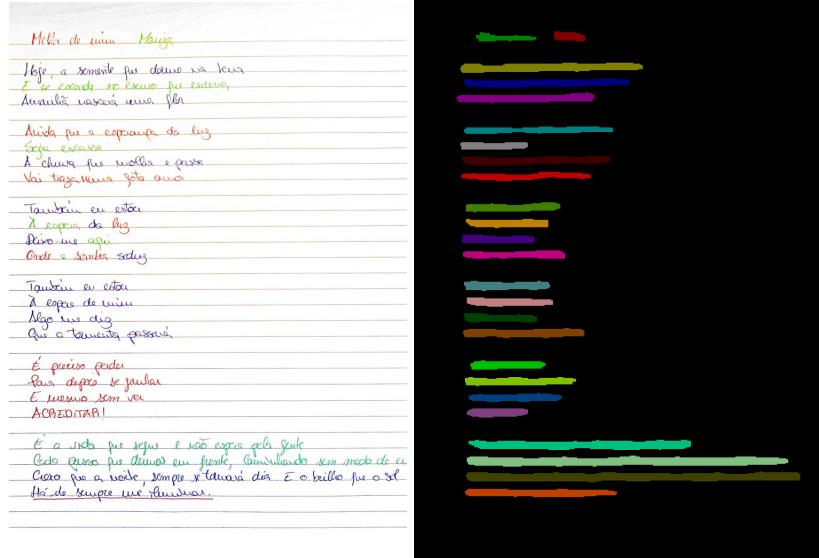 Melhor de mim Mariza
Hoje, a semente que dorme na terra
E se esconde no escuro que encerra
Amanhã nascerá uma flor
Ainda que a esperança da luz
Seja escassa
A chuva que molha e passa
Vai trazer numa gota amor
Também eu estou
À espera da luz
Deixo-me aqui
Onde a sombra seduz
Também eu estou
À espera de mim
Algo me diz
Que a tormenta passará
É preciso perder
Para depois se ganhar
E mesmo sem ver
ACREDITAR!
É a vida que segue e não espera pela gente
Cada passo que demos em frente, Caminhando sem medo de e
Creio que a noite, sempre se tornará dia E o brilho que o sol
Há-de sempre me iluminar.